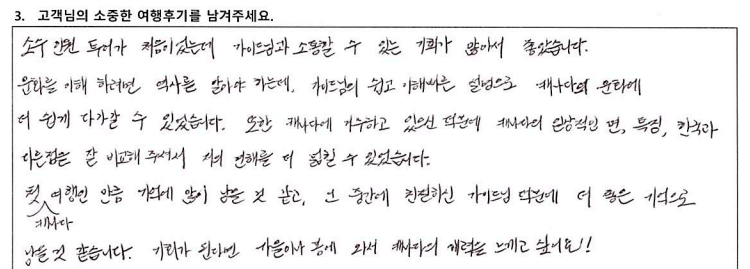 3. 고객님의 소중한 여행후기를 남겨주세요.
소수 인원 투어가 처음이었는데 가이드님과 소통할 수 있는 기회가 많아서 좋았습니다.
문화를 이해 하려면 역사를 알아야 하는데, 가이드님의 쉽고 이해빠른 설명으로 캐나다의 문화에
더 쉽게 다가갈 수 있었습니다. 또한 캐나다에 거주하고 있으신 덕분에 캐나다의 일상적인 면, 특징, 한국과
다른점을 잘 비교해 주셔서 저의 견해를 더 넓힐 수 있었습니다.
첫 캐나다 여행인 만큼 기억에 많이 남을 것 같고, 그 중간에 친절하신 가이드님 덕분에 더 좋은 기억으로
남을 것 같습니다. 기회가 된다면 가을이나 봄에 와서 캐나다의 매력을 느끼고 싶어요!!